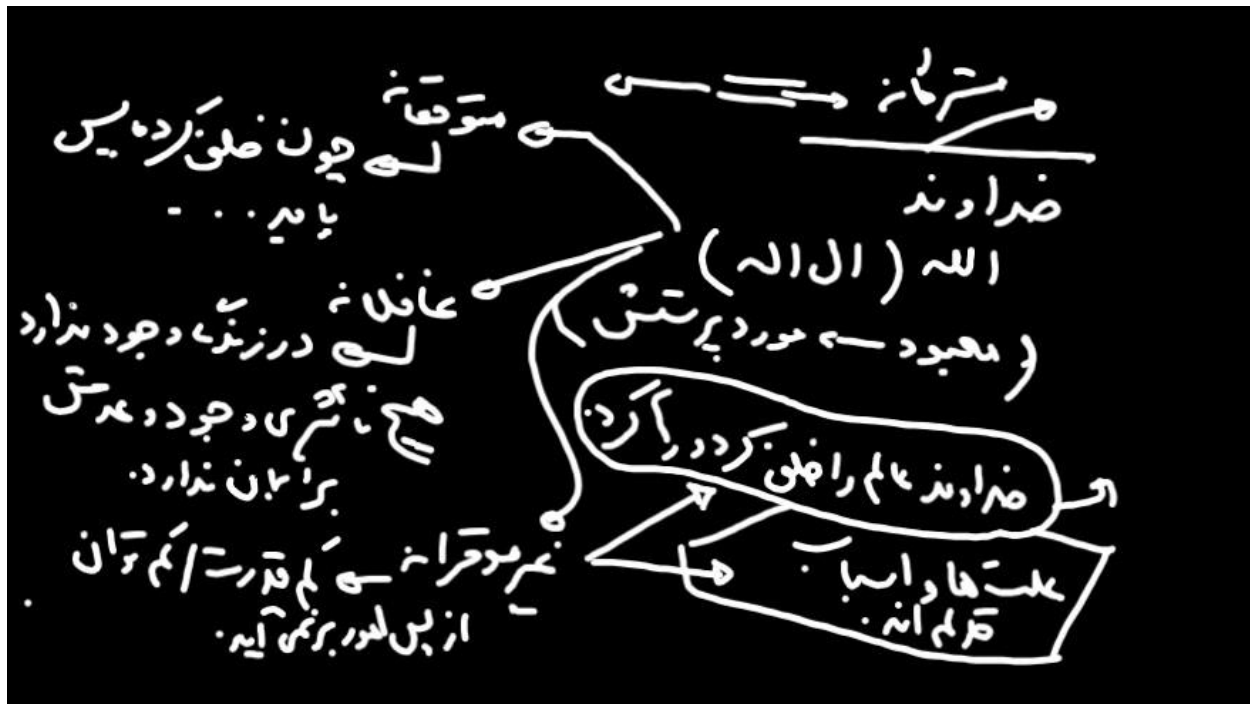 مشرکانه
خداوند
الله (ال اله)
(معبود ← مورد پرستش)
خداوند عالم را خلق کرد و رها کرد.
علت ها و اسباب
همه کاره اند.
متوقعانه
چون خلق کرده پس
باید ...
غافلانه
در زندگی ما وجود ندارد
هیچ تأثیری وجود و عدمش
برایمان ندارد.
غیر موقرانه ← کم قدرت / کم توان
از پس امور بر نمی آید.